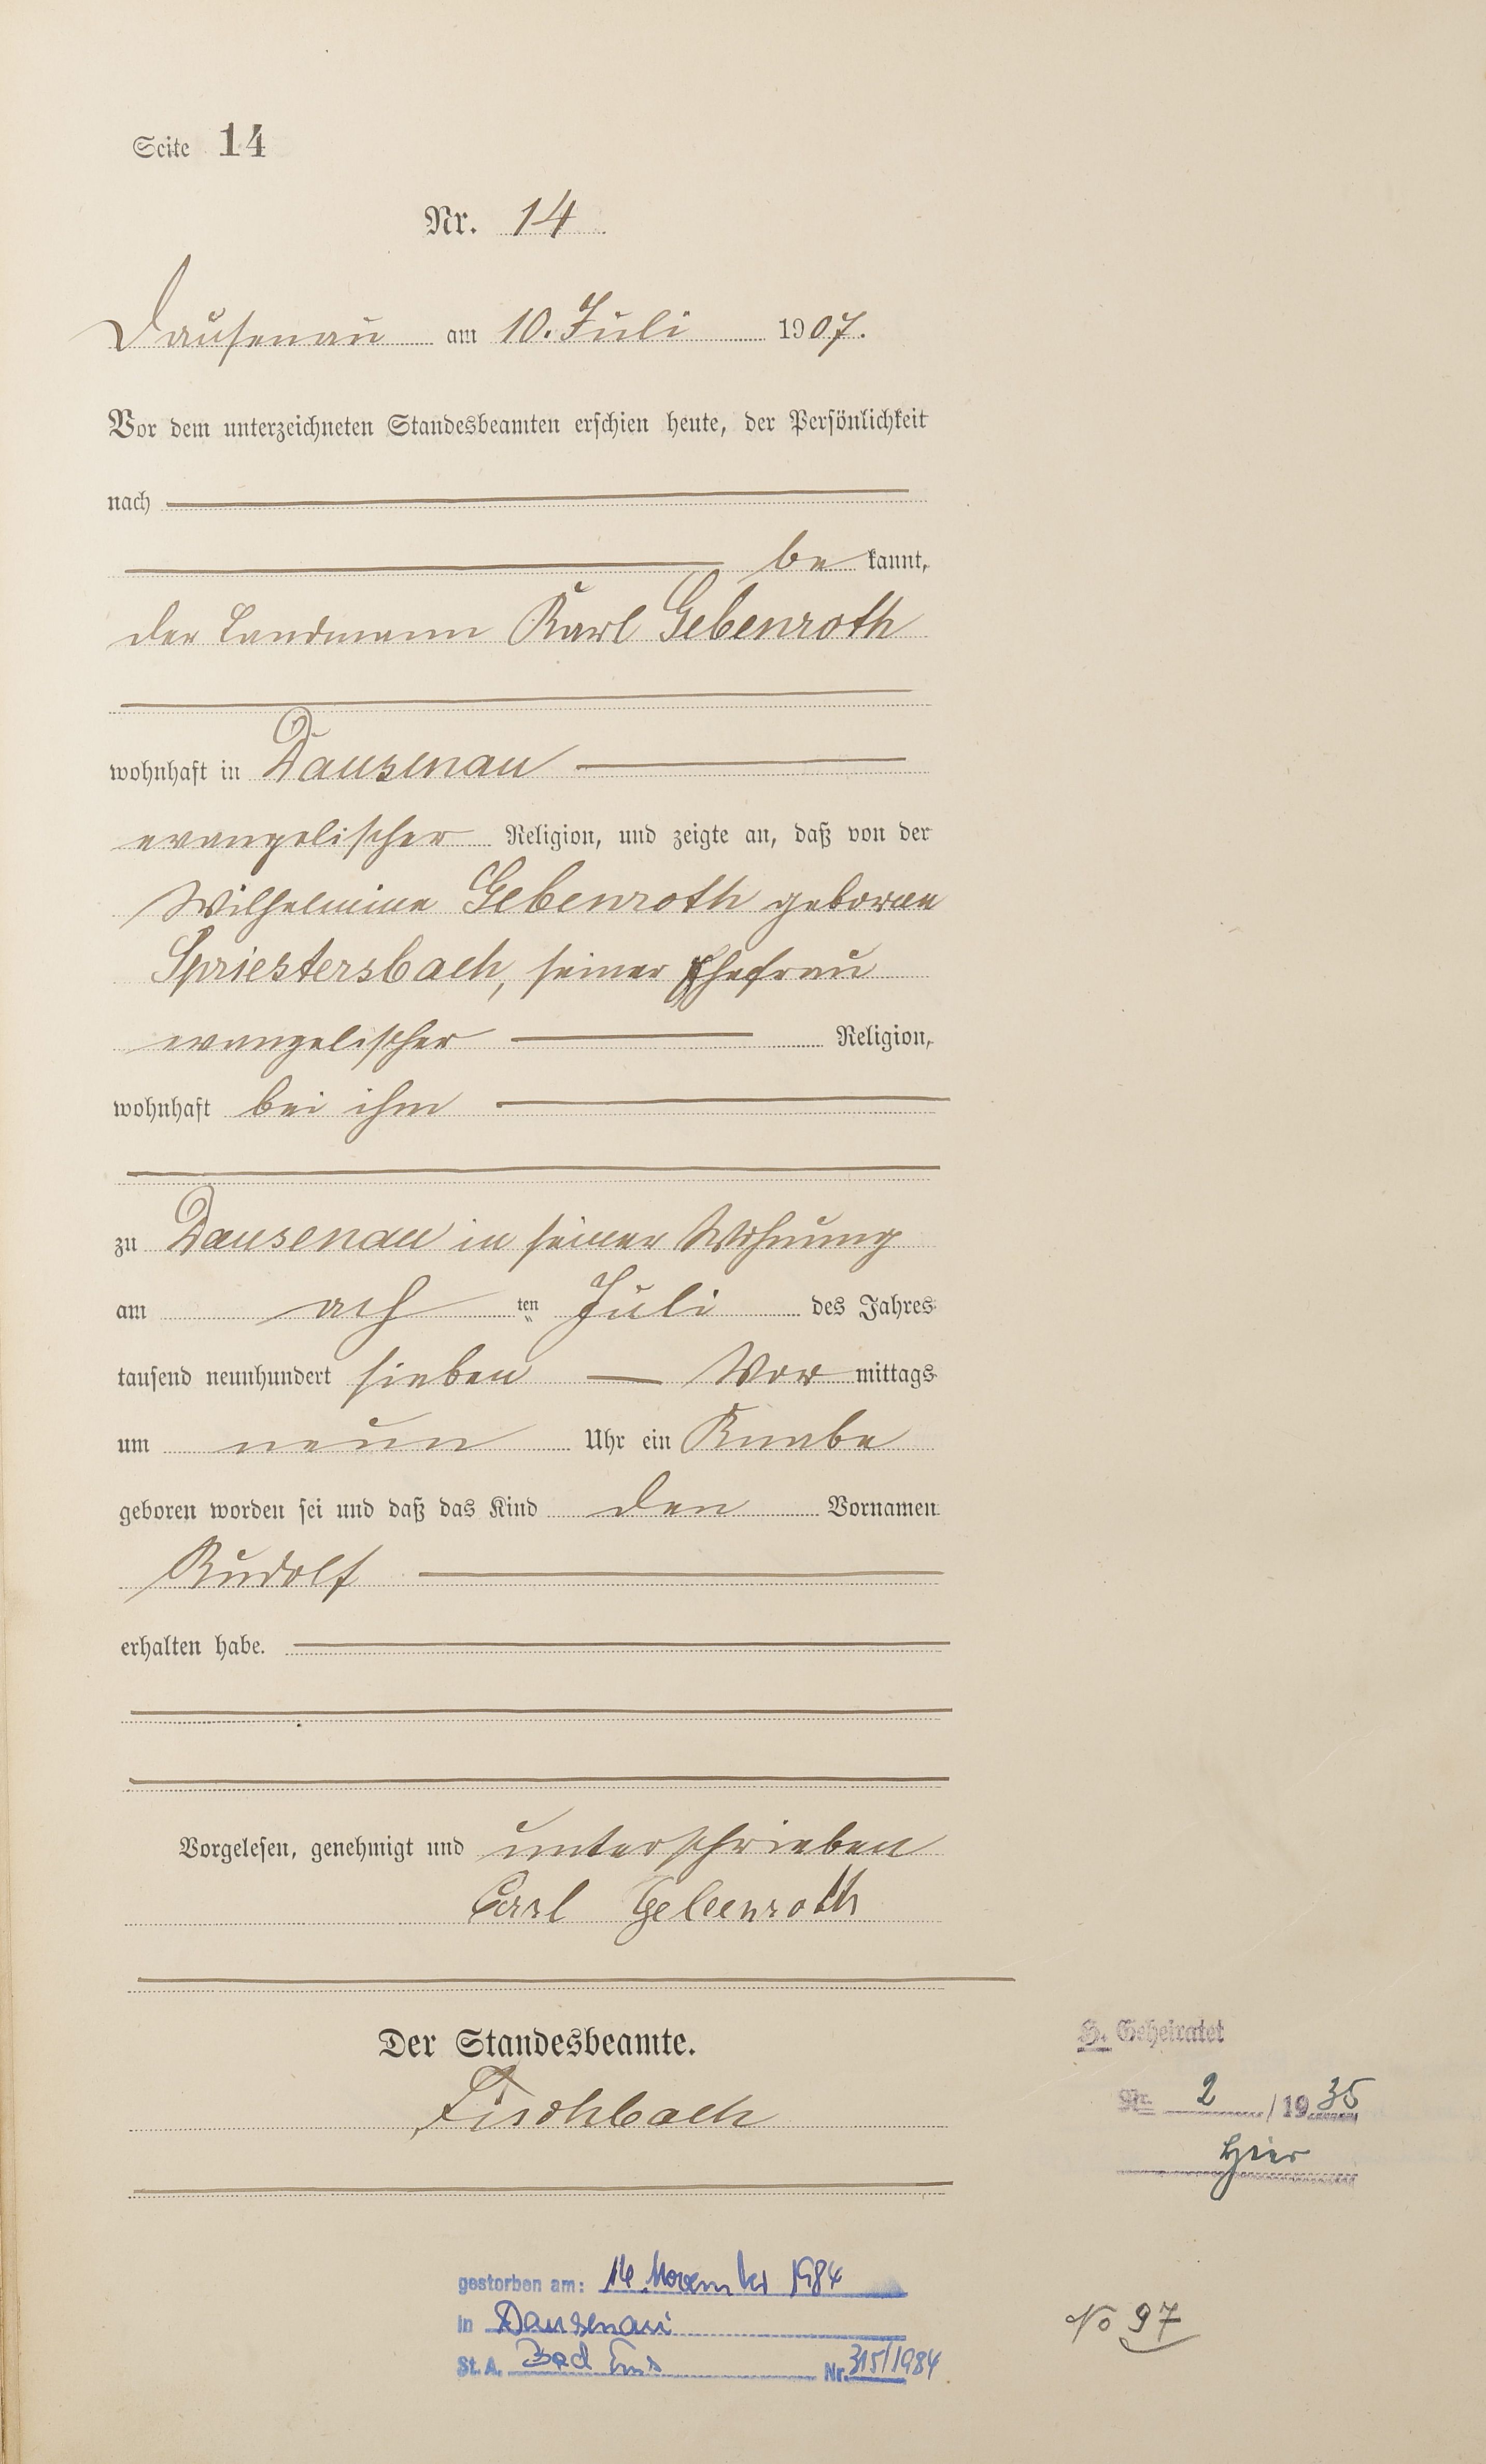 Seite 14
Nr. 14
Dausenau am 10. Juli 1907.
Vor dem unterzeichneten Standesbeamten erschien heute, der Persönlichkeit
nach
be kannt,
der Landmann Karl Gebenroth
wohnhaft in Dausenau
evangelischer Religion, und zeigte an, daß von der
Wilhelmine Gebenroth geborene
Spriestersbach, seiner Ehefrau
evangelischer Religion,
wohnhaft bei ihm
zu Dausenau in seiner Wohnung
am ach ten Juli des Jahres
tausend neunhundert sieben Vor mittags
um neun Uhr ein Knabe
geboren worden sei und daß das Kind den Vornamen
Rudolf
erhalten habe.
Vorgelesen, genehmigt und unterschrieben
Carl Gebenroth
Der Standesbeamte.
Fischbach
H. Geheiratet
Nr. 2 / 1935
hier
gestorben am: November 1984
in Dausenau
St. A. Bad Ems Nr. 315/1984
No 97